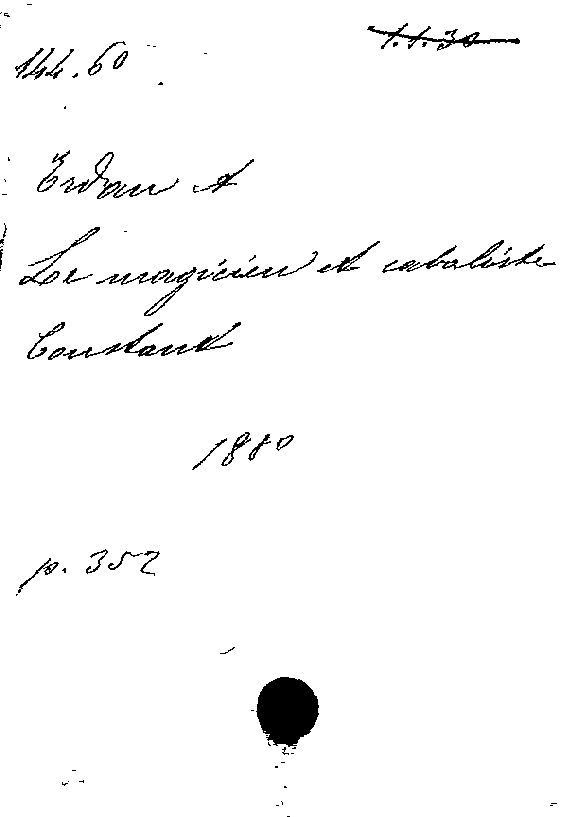 144.60
1.1.30
Erdan A
Le magicien et cabaliste
Constant
1880
p. 352